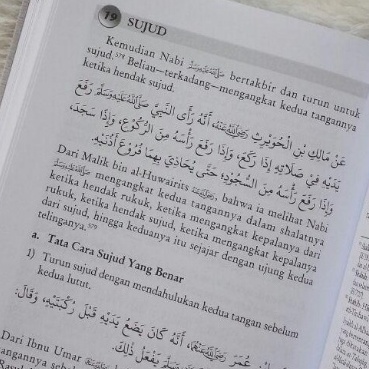 19 SUJUD
Kemudian Nabi ﷺ bertakbir dan turun untuk
sujud.⁵⁷⁹ Beliau—terkadang—mengangkat kedua tangannya
ketika hendak sujud.
عَنْ مَالِكِ بْنِ الْحُوَيْرِثِ رَضِيَ اللَّهُ عَنْهُ، أَنَّهُ رَأَى النَّبِيَّ صَلَّى اللَّهُ عَلَيْهِ وَسَلَّمَ رَفَعَ
يَدَيْهِ فِيْ صَلَاتِهِ إِذَا رَكَعَ، وَإِذَا رَفَعَ رَأْسَهُ مِنَ الرُّكُوْعِ، وَإِذَا سَجَدَ،
وَإِذَا رَفَعَ رَأْسَهُ مِنَ السُّجُوْدِ، حَتَّى يُحَاذِيَ بِهِمَا فُرُوْعَ أُذُنَيْهِ.
Dari Malik bin al-Huwairits, bahwa ia melihat Nabi
ﷺ mengangkat kedua tangannya dalam shalatnya
ketika hendak rukuk, ketika mengangkat kepalanya dari
rukuk, ketika hendak sujud, ketika mengangkat kepalanya
dari sujud, hingga keduanya itu sejajar dengan ujung kedua
telinganya.
a. Tata Cara Sujud Yang Benar
1) Turun sujud dengan mendahulukan kedua tangan sebelum
kedua lutut.
عُمَرَ رَضِيَ اللَّهُ عَنْهُ، أَنَّهُ كَانَ يَضَعُ يَدَيْهِ قَبْلَ رُكْبَتَيْهِ، وَقَالَ:
يَفْعَلُ ذٰلِكَ.
Dari Ibnu Umar